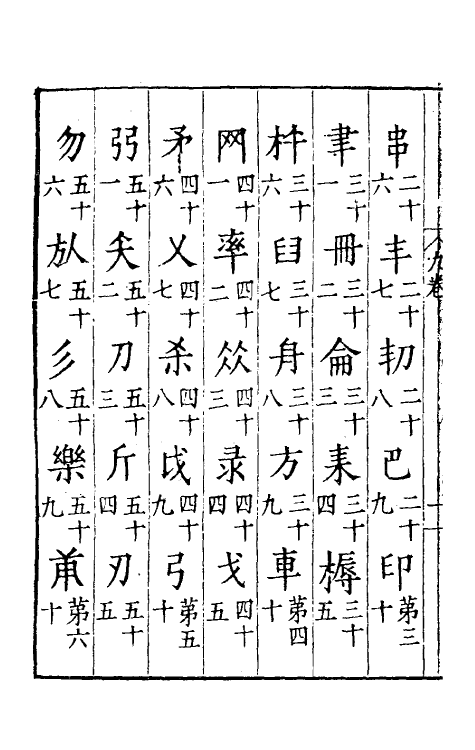 串二十六 丰二十七 㓞二十八 巴二十九 印第三十
聿三十一 冊三十二 侖三十三 耒三十四 槈三十五
三十六 臼三十七 身三十八 方三十九 車第四十
网四十一 率四十二 四十三 录四十四 戈四十五
矛四十六 乂四十七 杀四十八 戉四十九 弓第五十
弜五十一 矢五十二 刀五十三 斤五十四 刃五十五
勿五十六 㫃五十七 彡五十八 樂五十九 第六十
九卷